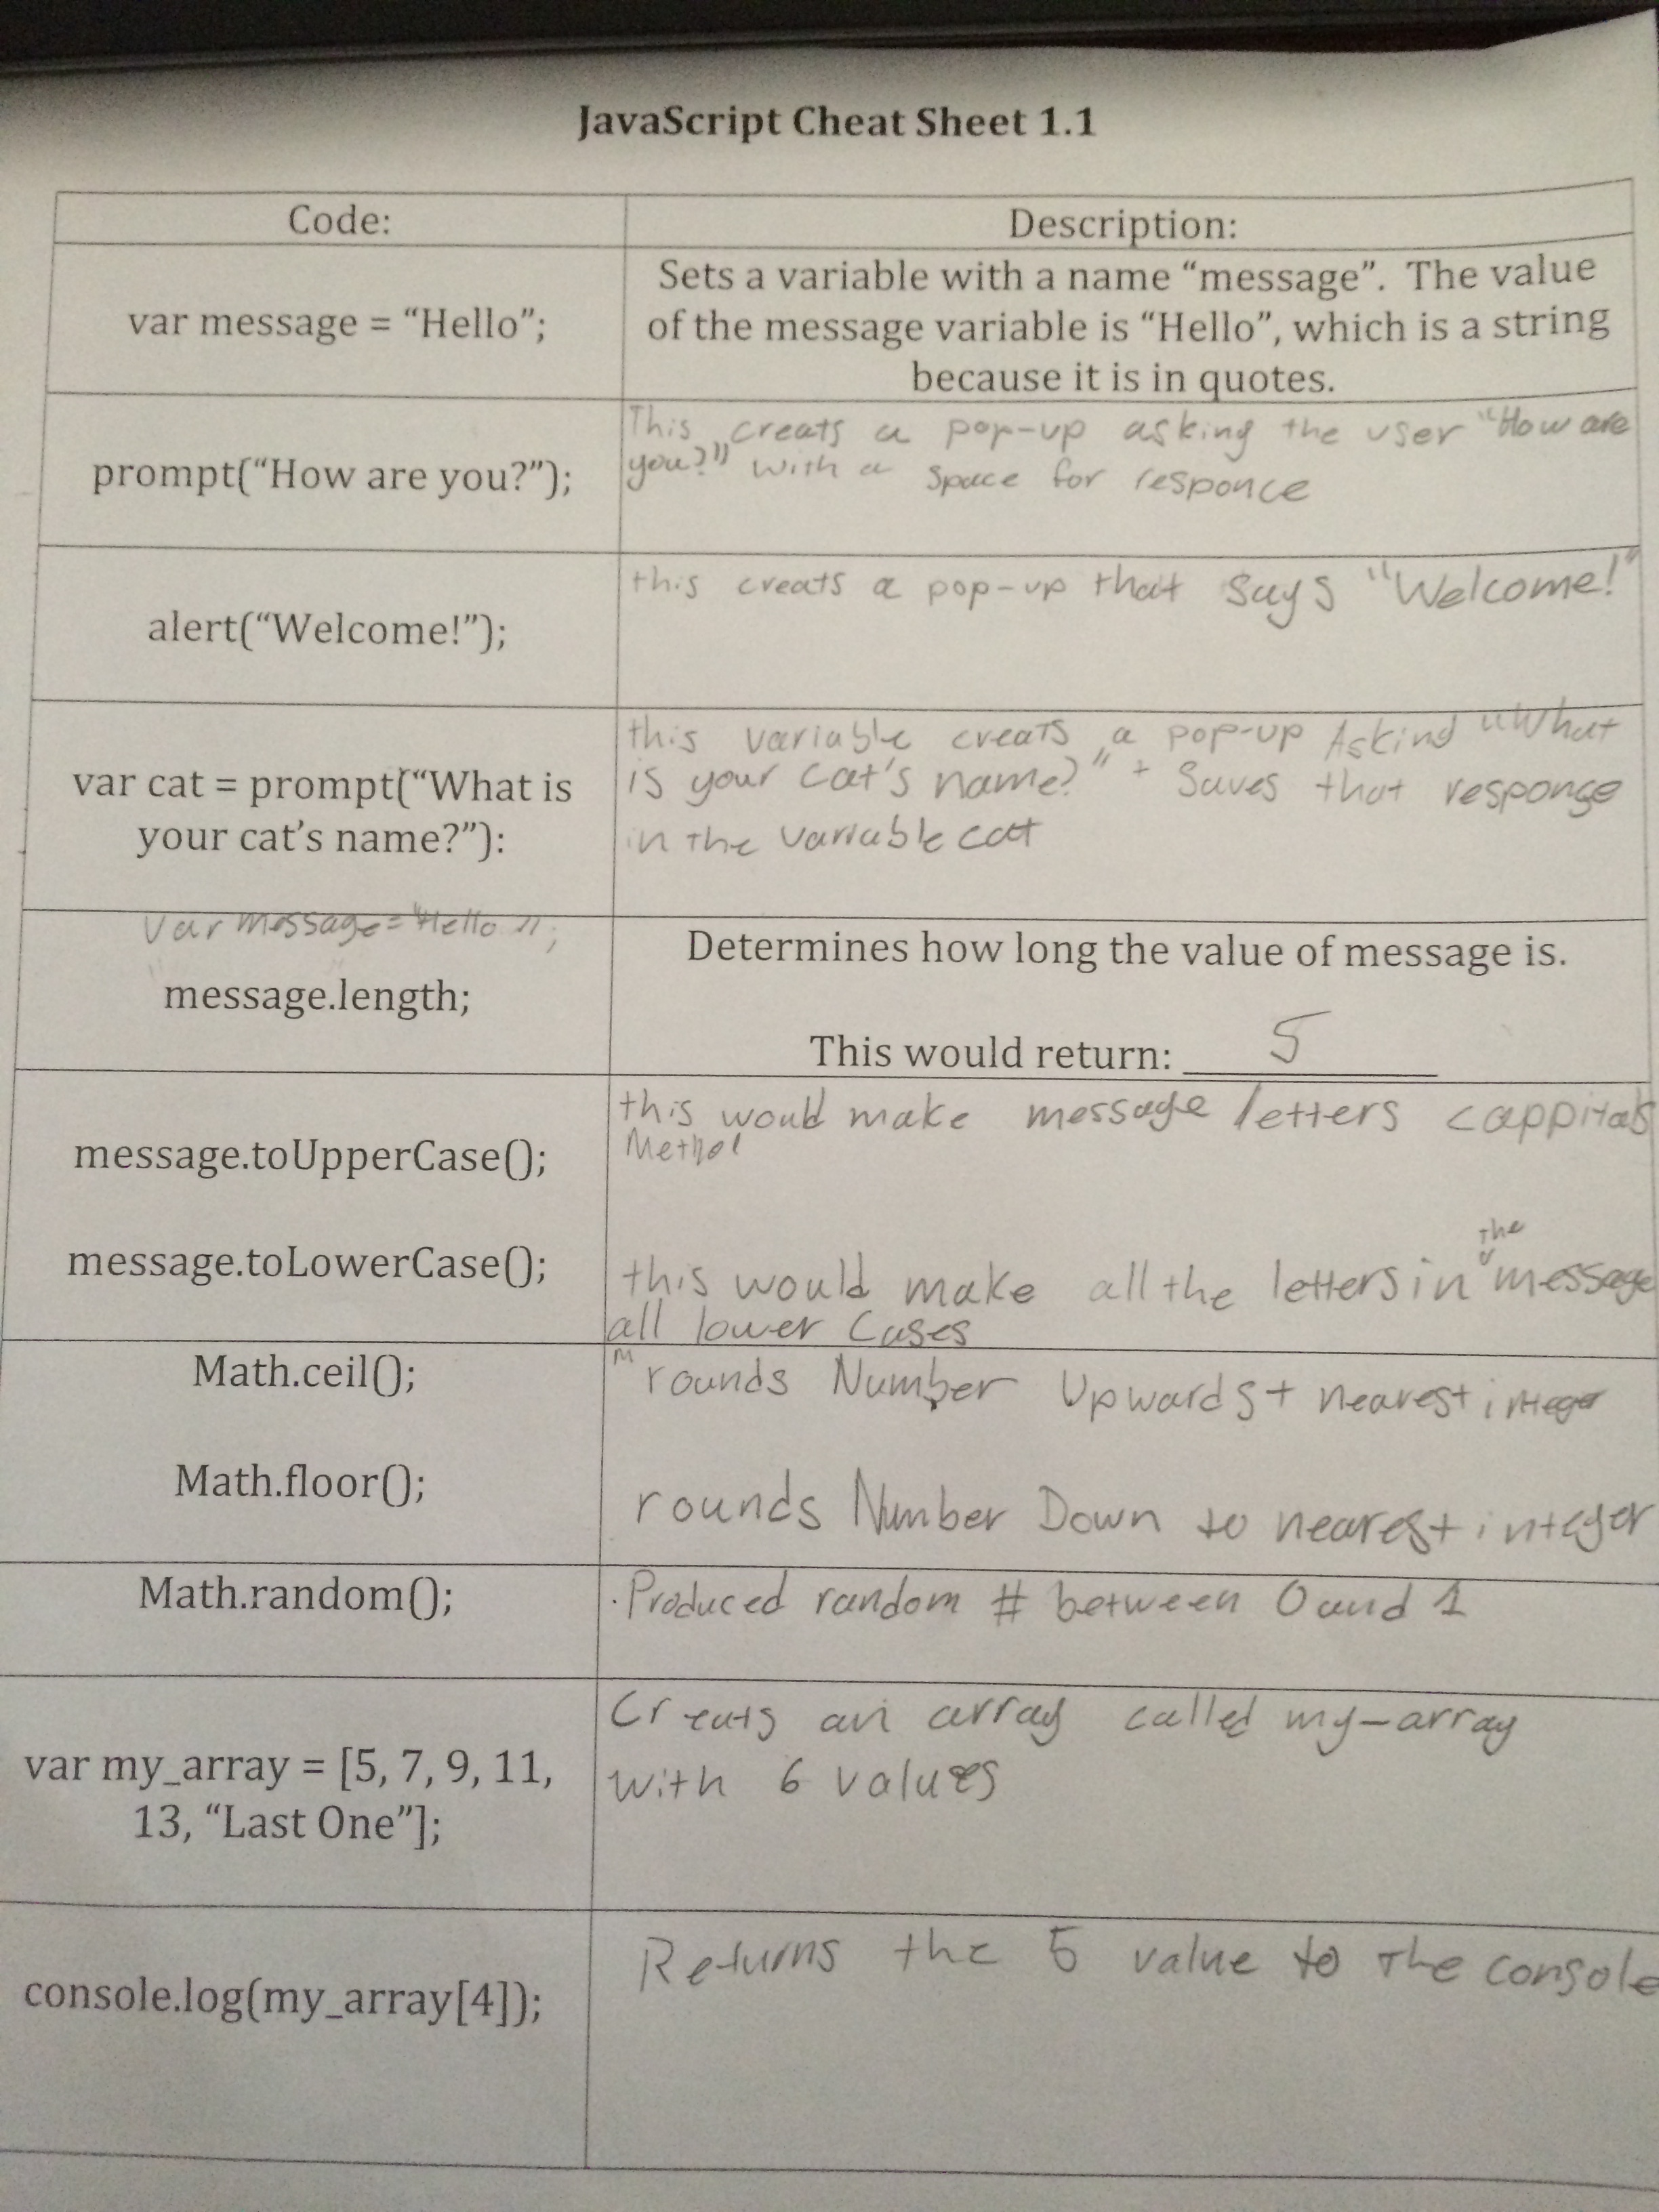 JavaScript Cheat Sheet 1.1
Code:
Description:
var message = “Hello”;
Sets a variable with a name “message”. The value
of the message variable is “Hello”, which is a string
because it is in quotes.
prompt(“How are you?”);
This creats a pop-up asking the user "How are
you?" with a space for responce
alert(“Welcome!”);
this creats a pop-up that says "Welcome!"
var cat = prompt(“What is
your cat’s name?”):
this variable creats a pop-up Askind "What
is your cat's name?" + Saves that response
in the variable cat
Var message="Hello";
message.length;
Determines how long the value of message is.
This would return: 5
message.toUpperCase();
this would make message letters cappitals
message.toLowerCase();
the
this would make all the letters in message
all lower Cases
Math.ceil();
M rounds Number Upwards + nearest integer
Math.floor();
rounds Number Down to nearest integer
Math.random();
·Produced random # between 0 and 1
var my_array = [5, 7, 9, 11,
13, “Last One”];
Creats an array called my-array
with 6 values
console.log(my_array[4]);
Returns the 5 value to the console